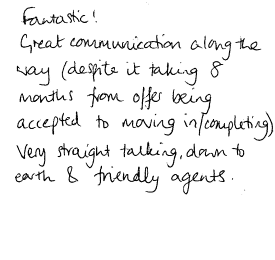 Fantastic!
Great communication along the
way (despite it taking 8
months from offer being
accepted to moving in/completing)
Very straight talking, down to
earth & friendly agents.